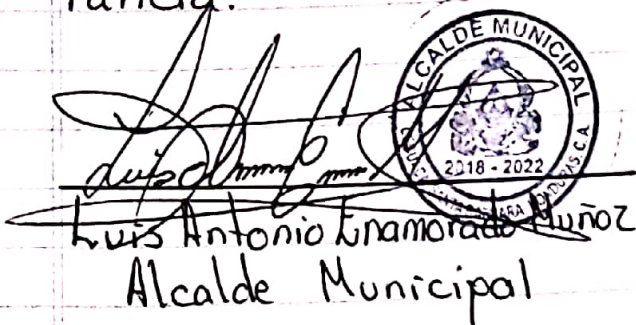 rancia.
ALCALDE MUNICIPAL
2018 - 2022
HONDURAS, C.A.
Luis Antonio Enamorado Muñoz
Alcalde Municipal